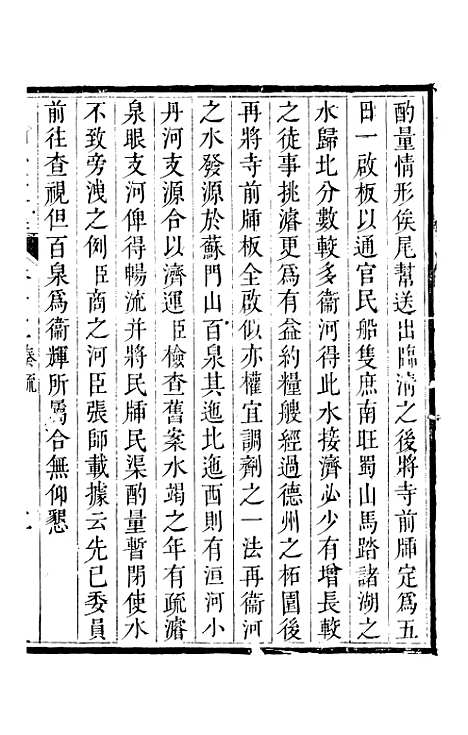 酌量情形俟尾幫送出臨清之後將寺前牐定爲五
日一啟板以通官民船隻庶南旺蜀山馬踏諸湖之
水歸北分數較多衞河得此水接濟必少有增長較
之徒事挑濬更爲有益約糧艘經過德州之柘園後
再將寺前牐板全啟似亦權宜調劑之一法再衞河
之水發源於蘇門山百泉其迤北迤西則有洹河小
丹河支源合以濟運臣檢查舊案水竭之年有疏濬
泉眼支河俾得暢流并將民牐民渠酌量暫閉使水
不致旁洩之例臣商之河臣張師載據云先已委員
前往查視但百泉爲衞輝所屬合無仰懇
奏疏